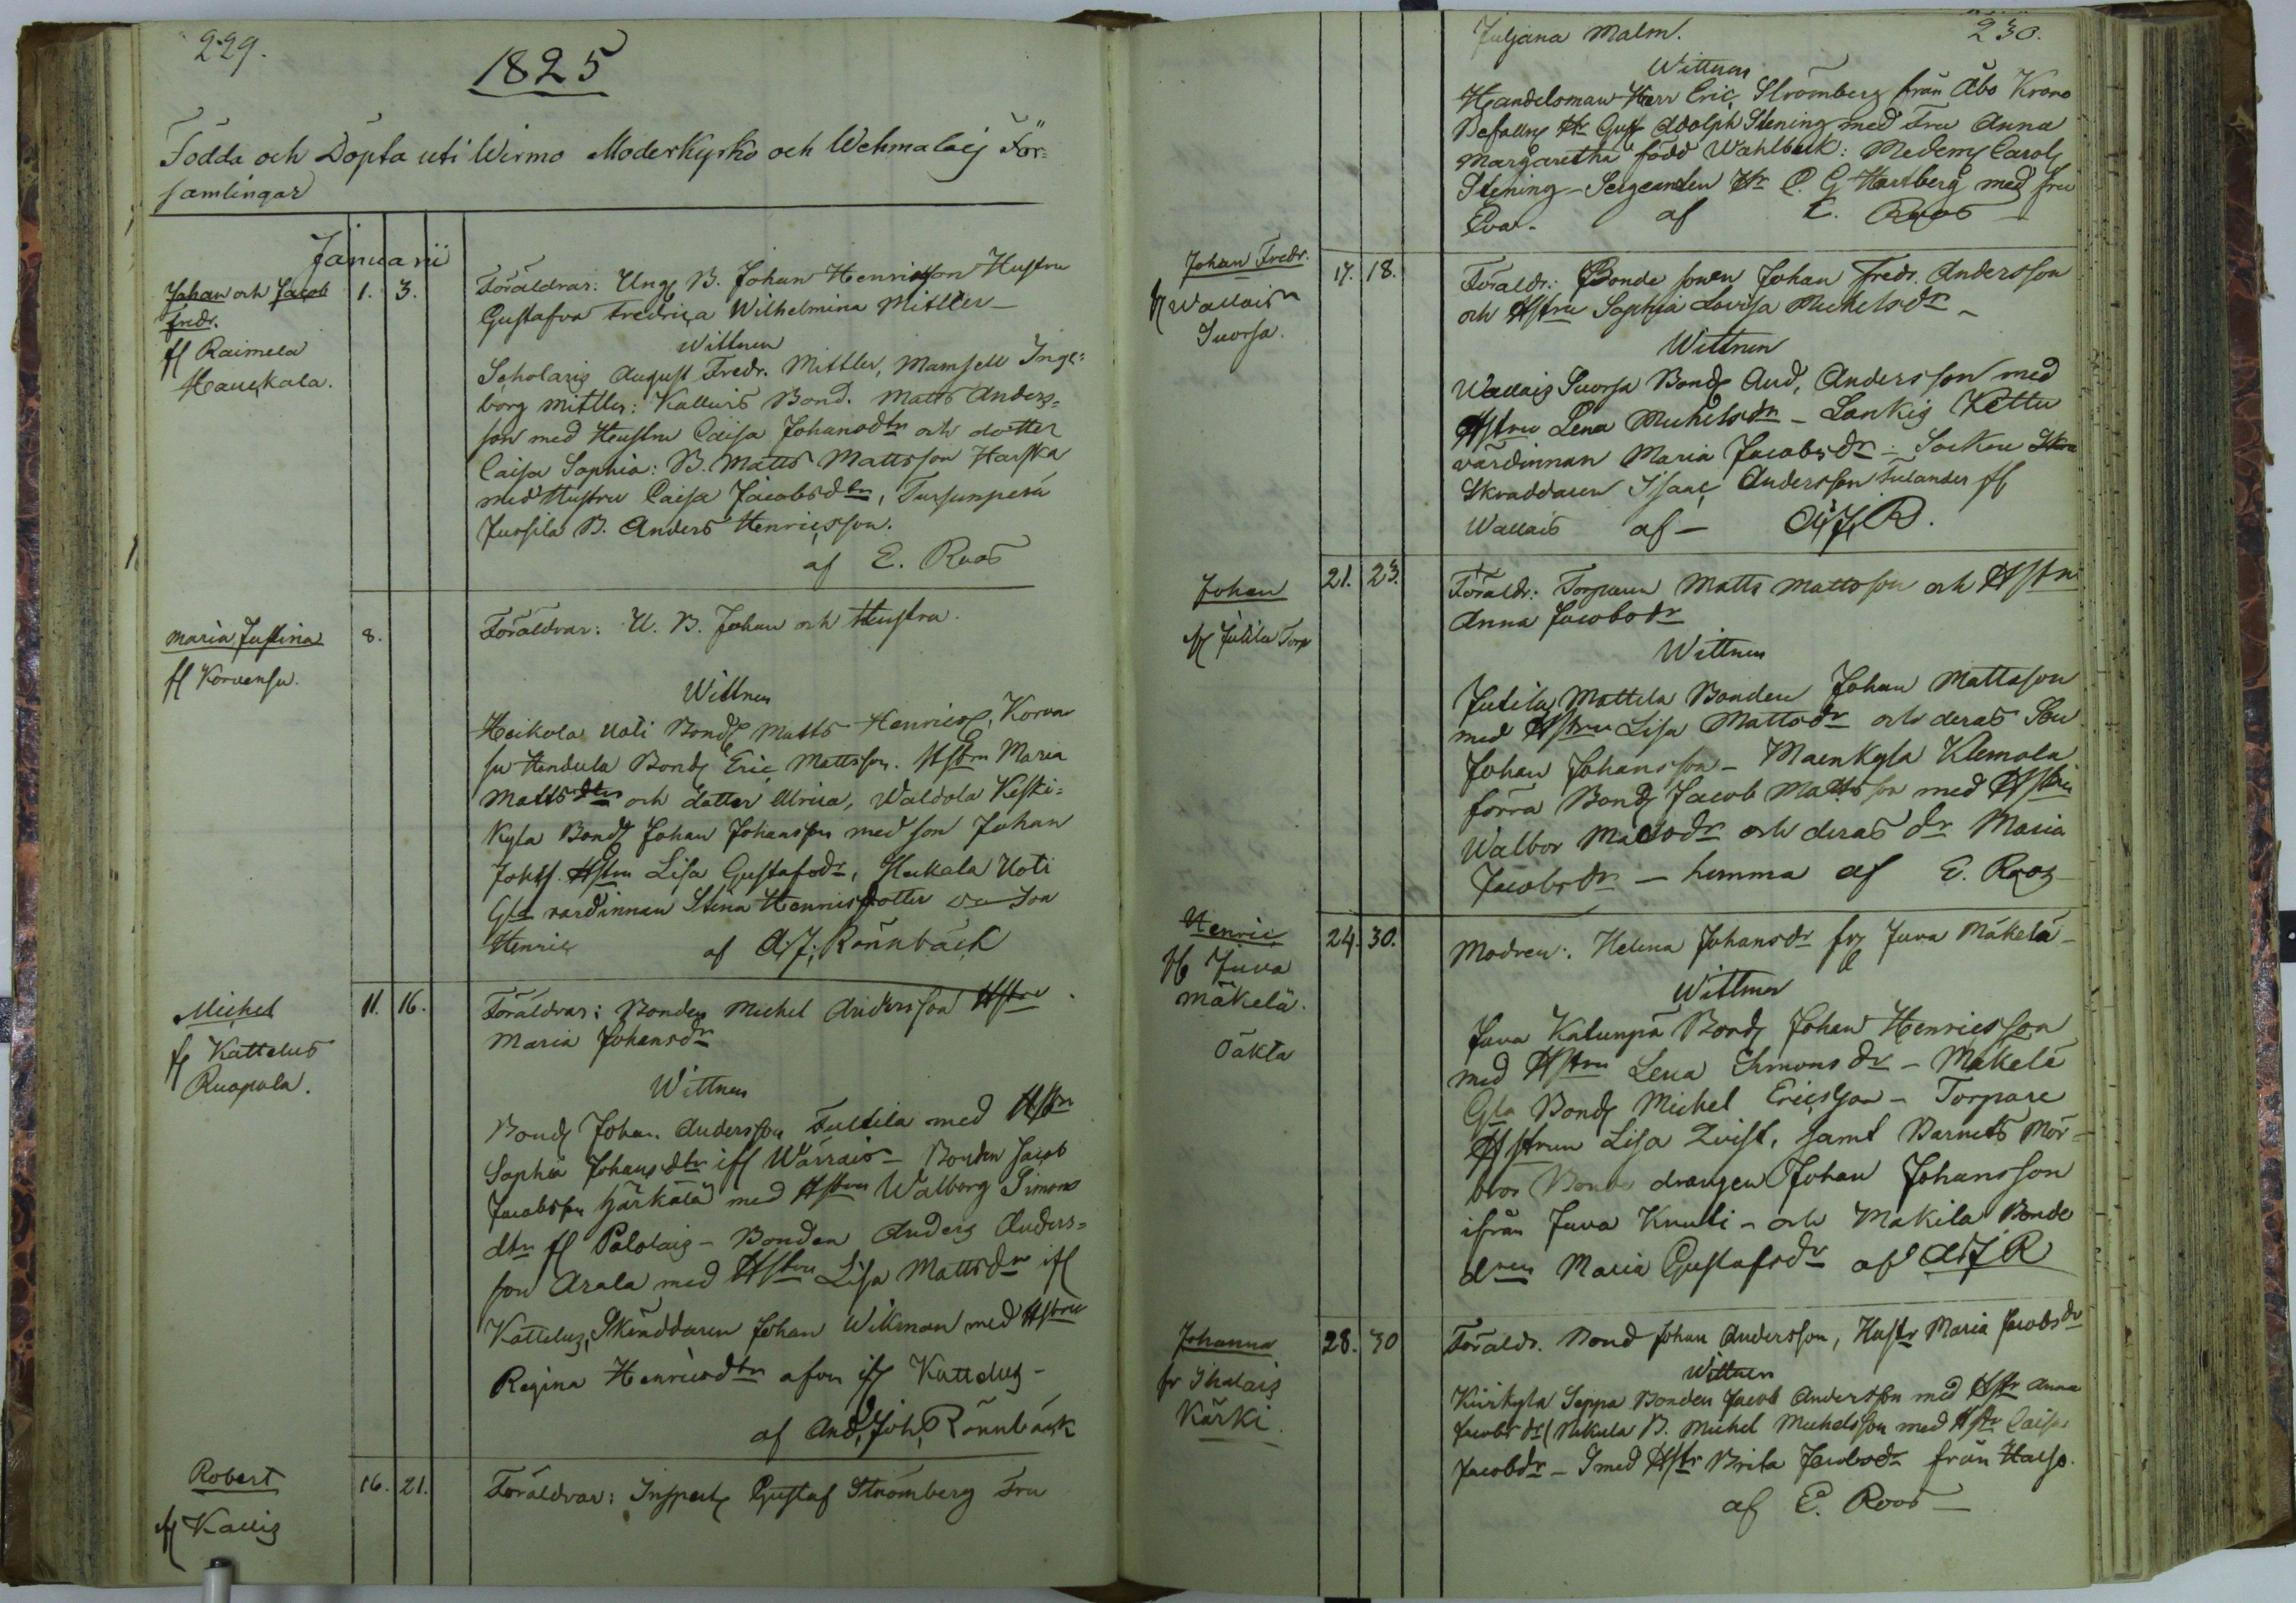 229.
1825
Födda och Döpta uti Wirmo Moderkyrko och Wehmalais För=
samlingar
Januarii
Johan och Jacob
Fredr.
fr Raimela
Haukkala.
1. 3.
Föräldrar: Ung B. Johan Henricsson Hustru
Gustafva Fredrica Wilhelmina Mittler
Wittnen
Scholaris August Fredr. Mittler, Mamsell Inge=
borg Mittler: Kalluis Bond. Matts Anders=
son med Hustru Caisa Johansdtr och dotter
Caisa Sophia: B. Matts Mattsson Harska
med Hustru Caisa Jacobsdtr, Tursunperä
Jussila B. Anders Henricsson.
af E. Roos
Maria Justina
fr Korvensu.
8.
Föräldrar: U. B. Johan och Hustru.
Wittnen
Heikola Uoti Bond Matts Henricss, Korven
su Hendula Bond Eric Mattsson. Hstru Maria
Mattsdtr och dotter Ulrica, Waldola Keski=
kyla Bond Johan Johansson med son Johan
Johss. Hstru Lisa Gustafsdr, Heikala Uoti
Gla värdinnan Stina Henricsdotter Son
Henric
af A. J. Rönnbäck
Michel
fr Kattelus
Ruopala.
11. 16.
Föräldrar: Bonden Michel Andersson Hstru
Maria Johansdr
Wittnen
Bond Johan Andersson Tultila med Hstru
Sophia Johansdtr ifr Wärrais – Bonden Jacob
Jacobsson Härkälä med Hstru Walborg Simons
dtr fr Palolais – Bonden Anders Anders=
son Arala med Hstru Lisa Mattsdr ifr
Kattelus, Skräddaren Johan Wikman med Hstru
Regina Henricsdtr afven ifr Kattelus –
af And. Joh. Rönnbäck
Robert
fr Kallis
16. 21.
Föräldrar: Inspect Gustaf Strömberg Fru
230.
Juljana Malm.
Wittnen
Handelsman Herr Eric Strömberg från Åbo Krono
Befallnn Hr Gust Adolph Stening med Fru Anna
Margaretha född Wahlbeck: Medems Carol
Stening – Sergeanten Hr C. G. Hartberg med fru
Eva. af E. Roos
Johan Fredr.
fr Wallais
Suorsa.
17. 18.
Föräldr: Bonde sonen Johan Fredr. Andersson
och Hstru Saphia Lovisa Michelsdr –
Wittnen
Wallais Suorsa Bond And. Andersson med
Hstru Lena Michelsdr – Lankis Kettu
värdinnan Maria Jacobsdr – Socken
Skräddaren Isaac Andersson Tulander fr
Wallais af – A. J. R.
Johan
fr Jutila Torp
21. 23.
Föräldr: Torparen Matts Mattsson och Hstru
Anna Jacobsdr
Wittnen
Jutila Mattila Bonden Johan Mattsson
med Hstru Lisa Mattsdr och deras Son
Johan Johansson – Maenkyla Klemola
förra Bond Jacob Mattsson med Hstru
Walbor Mattsdr och deras dr Maria
Jacobsdr – hemma af E. Roos
Henric
fr Juva
Mäkelä.
Oäkta
24. 30.
Modren: Helena Johansdr fr Juva Mäkelä –
Wittnen
Juva Katunpä Bond Johan Henricsson
med Hstru Lena Simonsdr – Mäkelä
Gla Bond Michel Ericsson – Torpare
Hstrun Lisa Qvist, samt Barnets Mor=
bror Bonde drängen Johan Johansson
ifrån Juva Knuti – och Mäkila Bonde
dren Maria Gustafsdr af A. J. R
Johanna
fr Ihalais
Kärki
28. 30
Föräldr. Bond Johan Andersson, Hustr Maria Jacobsdr
Wittnen
Kirkyla Seppä Bonden Jacob Andersson med Hstr Anna
Jacobsdr Nikula B. Michel Michelsson med Hstr Caisa
Jacobdr – med Hstr Brita Jacobsdr från
af E. Roos –